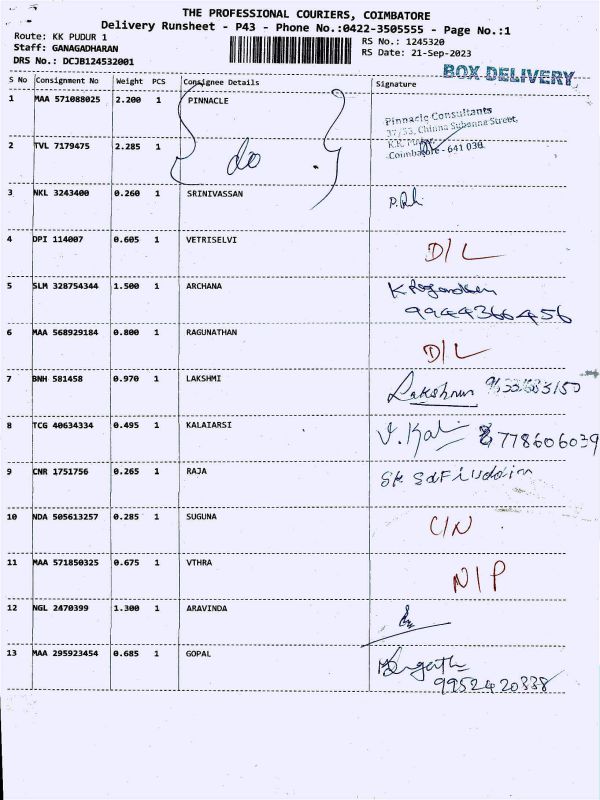 THE PROFESSIONAL COURIERS, COIMBATORE
Delivery Runsheet - P43 - Phone No.:0422-3505555 - Page No.:1
Route: KK PUDUR 1 RS No.: 1245320
Staff: GANAGADHARAN RS Date: 21-Sep-2023
DRS No.: DCJB124532001
BOX DELIVERY
S No Consignment No Weight PCS Consignee Details Signature
1 MAA 571088025 2.200 1 PINNACLE
Pinnacle Consultants
37/53, Chinna Subanna Street,
K.K.
Coimbatore - 641 038.
2 TVL 7179475 2.285 1 do
3 NKL 3243400 0.260 1 SRINIVASSAN
4 DPI 114007 0.605 1 VETRISELVI D/L
5 SLM 328754344 1.500 1 ARCHANA
9944366456
6 MAA 568929184 0.800 1 RAGUNATHAN D/L
7 BNH 581458 0.970 1 LAKSHMI
8 TCG 40634334 0.495 1 KALAIARSI V. Kal
9 CNR 1751756 0.265 1 RAJA SK Safiuddin
10 NDA 505613257 0.285 1 SUGUNA C/N
11 MAA 571850325 0.675 1 VTHRA N/P
12 NGL 2470399 1.300 1 ARAVINDA
13 MAA 295923454 0.685 1 GOPAL
9952420338